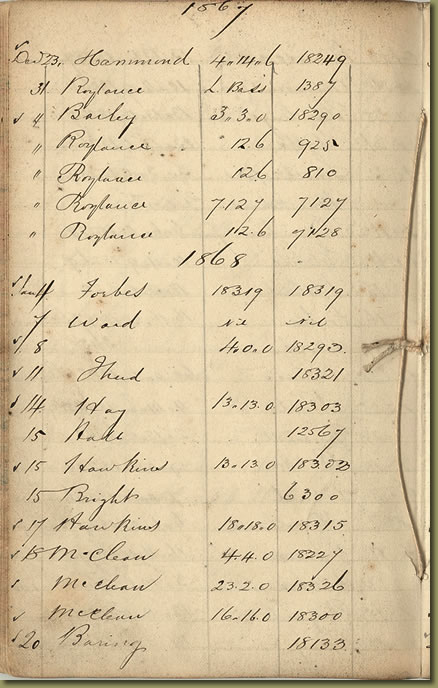 1867
Dec 23. Hammond 4.14.6 18249
31 Roylance L. Bass 1387
✓ 4 Bailey 3.3.0 18290
" Roylance 12.6 925
" Roylance 12.6 810
" Roylance 7127 7127
" Roylance 12.6 7128
1868
✓ Jan 4 Forbes 18319 18319
7 Ward Nil Nil
✓ 8 4.0.0 18293.
✓ 11 18321
✓ 14 Hay 13.13.0 18303
15 12567
✓ 15 Hawkins 13.13.0
15 Bright 6300
✓ 17 Hawkins 18.18.0 18315
✓ 18 McClean 4.4.0 18227
✓ McClean 23.2.0 18326
✓ McClean 16.16.0 18300
✓ 20 Baring 18133